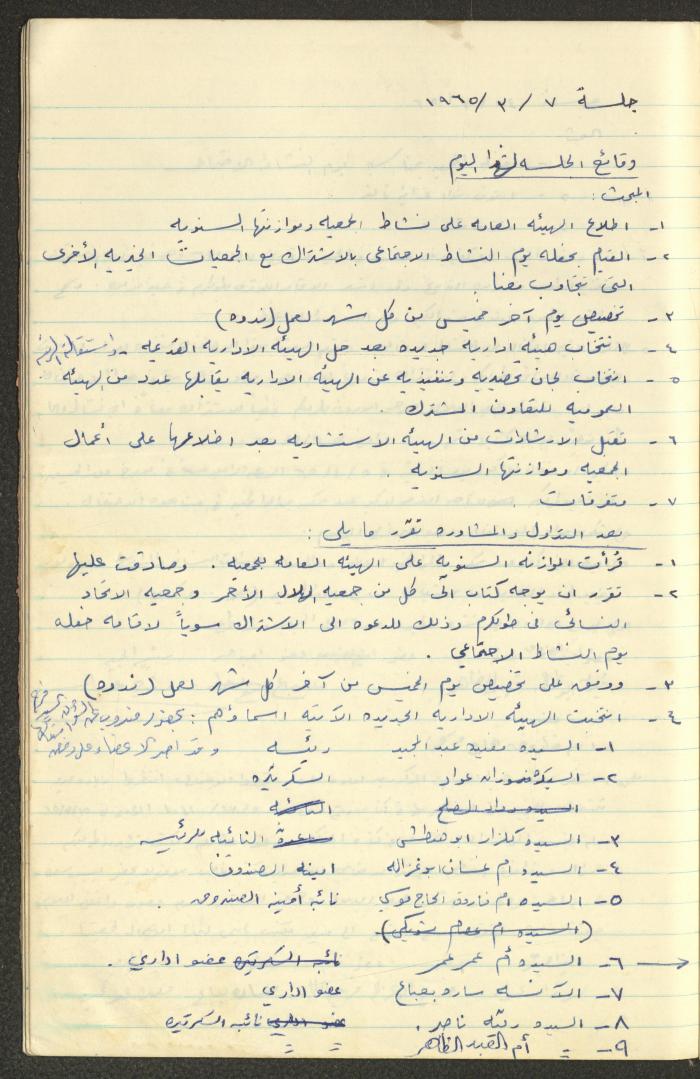 جلسة ٧ / ٣ / ١٩٦٥
وقائع الجلسه لهذا اليوم
المبحث :
١- اطلاع الهيئه العامه على نشاط الجمعيه وموازنتها السنويه
٢- القيام بحفله يوم النشاط الاجتماعي بالاشتراك مع الجمعيات الخيريه الأخرى
التي تتجاوب معنا .
٣- تخصيص يوم آخر خميس من كل شهر لعمل (ندوه)
٤- انتخاب هيئه اداريه جديده بعد حل الهيئه الاداريه القديمه
٥- انتخاب لجان تحضيريه وتنفيذيه عن الهيئه الاداريه يقابلها عدد من الهيئه
العموميه للتعاون المشترك .
٦- تقبل الارشادات من الهيئه الاستشاريه بعد اطلاعها على أعمال
الجمعيه وموازنتها السنويه .
٧- متفرقات
بعد التداول والمشاوره تقرر ما يلي :
١- قُرأت الموازنه السنويه على الهيئه العامه للجمعيه . وصادقت عليها
٢- تقرر ان يوجه كتاب الى كل من جمعيه الهلال الأحمر وجمعيه الاتحاد
النسائي في طولكرم وذلك للدعوه الى الاشتراك سوياً لاقامه حفله
يوم النشاط الاجتماعي .
٣- ووفق على تخصيص يوم الخميس من آخر كل شهر لعمل (ندوه)
٤- انتخبت الهيئه الاداريه الجديده الآتيه اسماؤهم : بحضور مندوب
١- السيده مفيده عبد المجيد رئيسه
٢- السيده فوزان عواد السكرتيره
٣- السيده كلزار ابو هنطش النائبه للرئيسه
٤- السيده ام غسان ابو غزاله امينه الصندوق
٥- السيده ام فاروق الحاج موسى نائبه أمينه الصندوق
(السيده ام عصام)
٦- السيده أم عمر عمر نائبه السكرتيره عضو اداري .
٧- الآنسه ساره بعباع عضو اداري
٨- السيده ربيّه ناصر . عضو اداري نائبه السكرتيره
٩- = أم العبد الظاهر = =